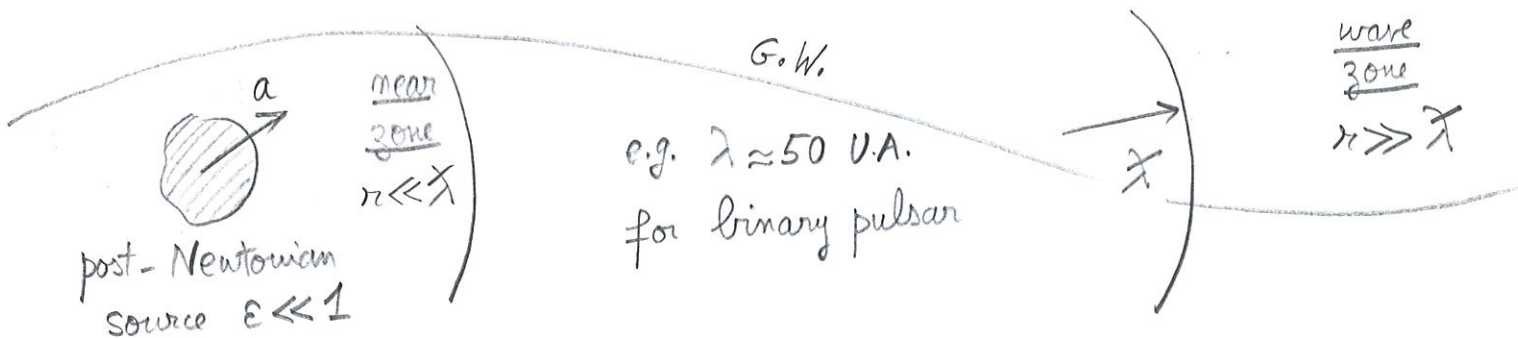 a
near
zone
r<<ƛ
post-Newtonian
source ε<<1
G.W.
e.g. λ≈50 U.A.
for binary pulsar
ƛ
wave
zone
r>>ƛ